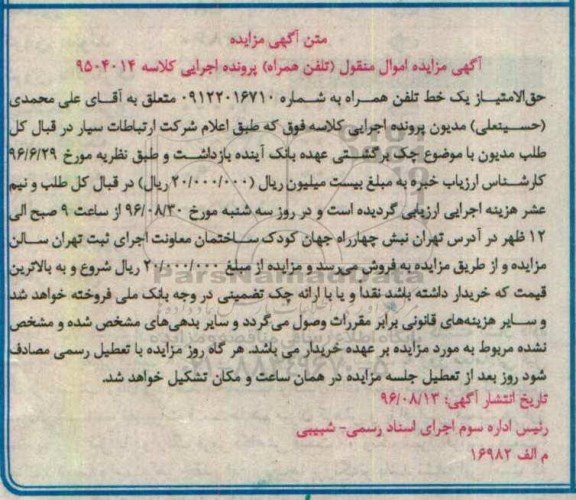 متن آگهی مزایده
آگهی مزایده اموال منقول (تلفن همراه) پرونده اجرایی کلاسه ۹۵۰۴۰۱۴
حق‌الامتیاز یک خط تلفن همراه به شماره ۰۹۱۲۲۰۱۶۷۱۰ متعلق به آقای علی محمدی
(حسینعلی) مدیون پرونده اجرایی کلاسه فوق که طبق اعلام شرکت ارتباطات سیار در قبال کل
طلب مدیون با موضوع چک برگشتی عهده بانک آینده بازداشت و طبق نظریه مورخ ۹۶/۶/۲۹
کارشناس ارزیاب خبره به مبلغ بیست میلیون ریال (۲۰/۰۰۰/۰۰۰ ریال) در قبال کل طلب و نیم
عشر هزینه اجرایی ارزیابی گردیده است و در روز سه شنبه مورخ ۹۶/۰۸/۳۰ از ساعت ۹ صبح الی
۱۲ ظهر در آدرس تهران نبش چهارراه جهان کودک ساختمان معاونت اجرای ثبت تهران سالن
مزایده و از طریق مزایده به فروش می‌رسد و مزایده از مبلغ ۲۰/۰۰۰/۰۰۰ ریال شروع و به بالاترین
قیمت که خریدار داشته باشد نقداً و یا با ارائه چک تضمینی در وجه بانک ملی فروخته خواهد شد
و سایر هزینه‌های قانونی برابر مقررات وصول می‌گردد و سایر بدهی‌های مشخص شده و مشخص
نشده مربوط به مورد مزایده بر عهده خریدار می باشد. هر گاه روز مزایده با تعطیل رسمی مصادف
شود روز بعد از تعطیل جلسه مزایده در همان ساعت و مکان تشکیل خواهد شد.
تاریخ انتشار آگهی: ۹۶/۰۸/۱۳
رئیس اداره سوم اجرای اسناد رسمی- شبیبی
م الف ۱۶۹۸۲
ParsNamadData